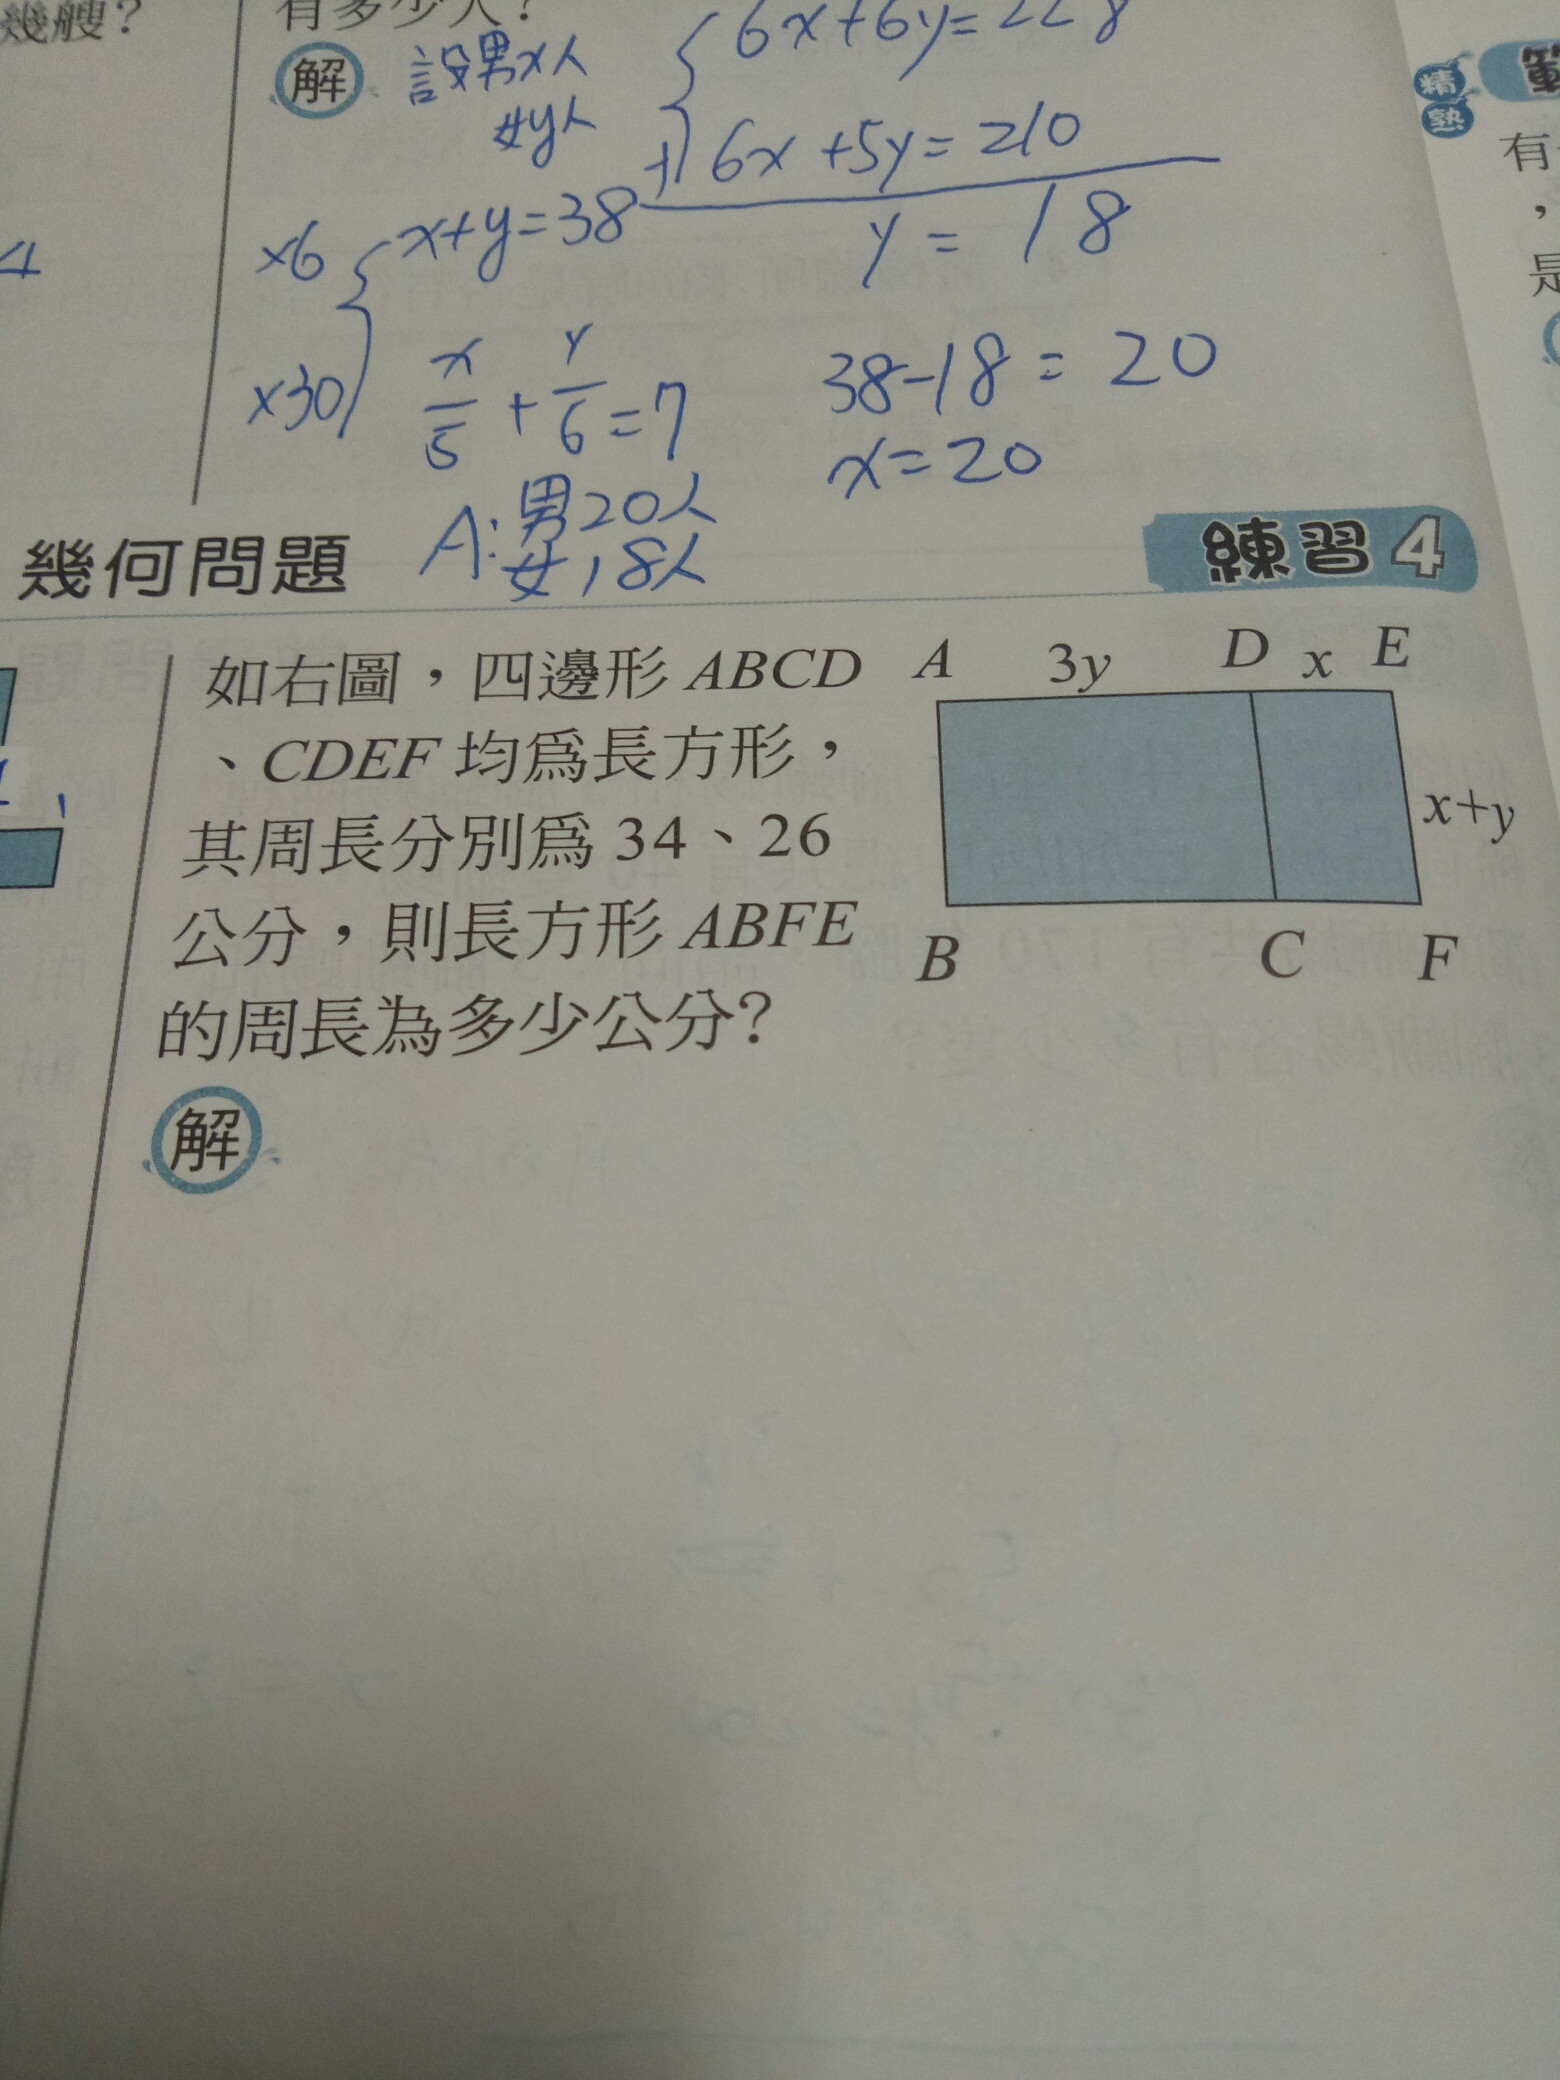 幾艘?
解
設男x人
女y人
6x+5y=210
y=18
×6
x+y=38
×30
x/5+y/6=7
38-18=20
x=20
A:男20人
女18人
4
精熟
有
,
是
幾何問題
練習4
如右圖,四邊形 ABCD
、CDEF 均爲長方形,
其周長分別爲 34、26
公分,則長方形 ABFE
的周長為多少公分?
A 3y D x E
x+y
B C F
解